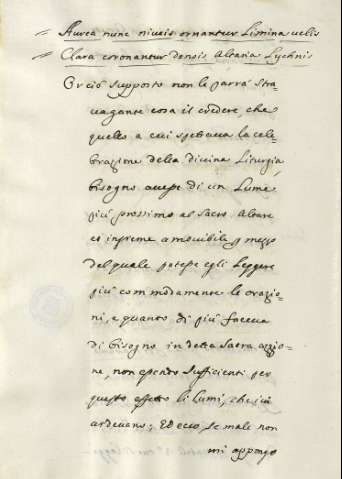 = Aurea nunc niveis ornantur Limina velis
= Clara coronantur densis Altaria Lychnis
Or ciò supposto non le parrà stra-
vagante cosa il credere, che
quello a cui spettava la cele-
brazione della divina Liturgia,
bisogno avesse di un Lume
più prossimo al Sacro Altare
et insieme amovibile p mezzo
del quale potesse egli Leggere
più commodamente le orazio-
ni, e quanto di più faceva
di bisogno in detta Sacra azzio-
ne, non essendo sufficienti per
questo effetto li Lumi, che ivi
ardevano; Ed ecco, se male non
mi appongo